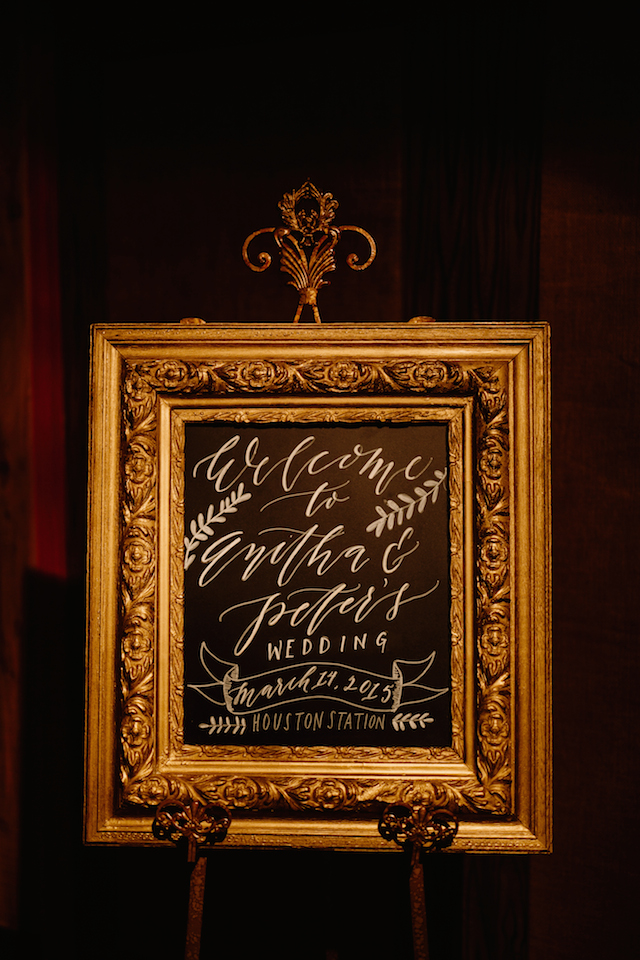 Welcome
to
Anitha &
Peter's
WEDDING
March 14, 2015
HOUSTON STATION